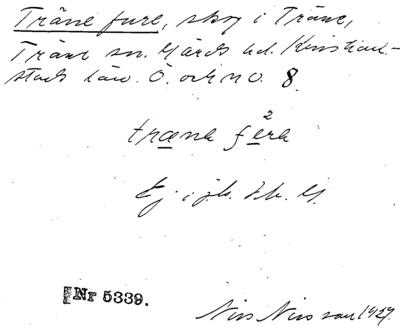 Träne fure, skog i Träne,
Träne sn. Gärds hd. Kristian-
stads län. Ö. och N O. 8.
2
træna fɛra
Ej i jb. Sk. U.
Nr 5339.
Nils Nilsson 1929.